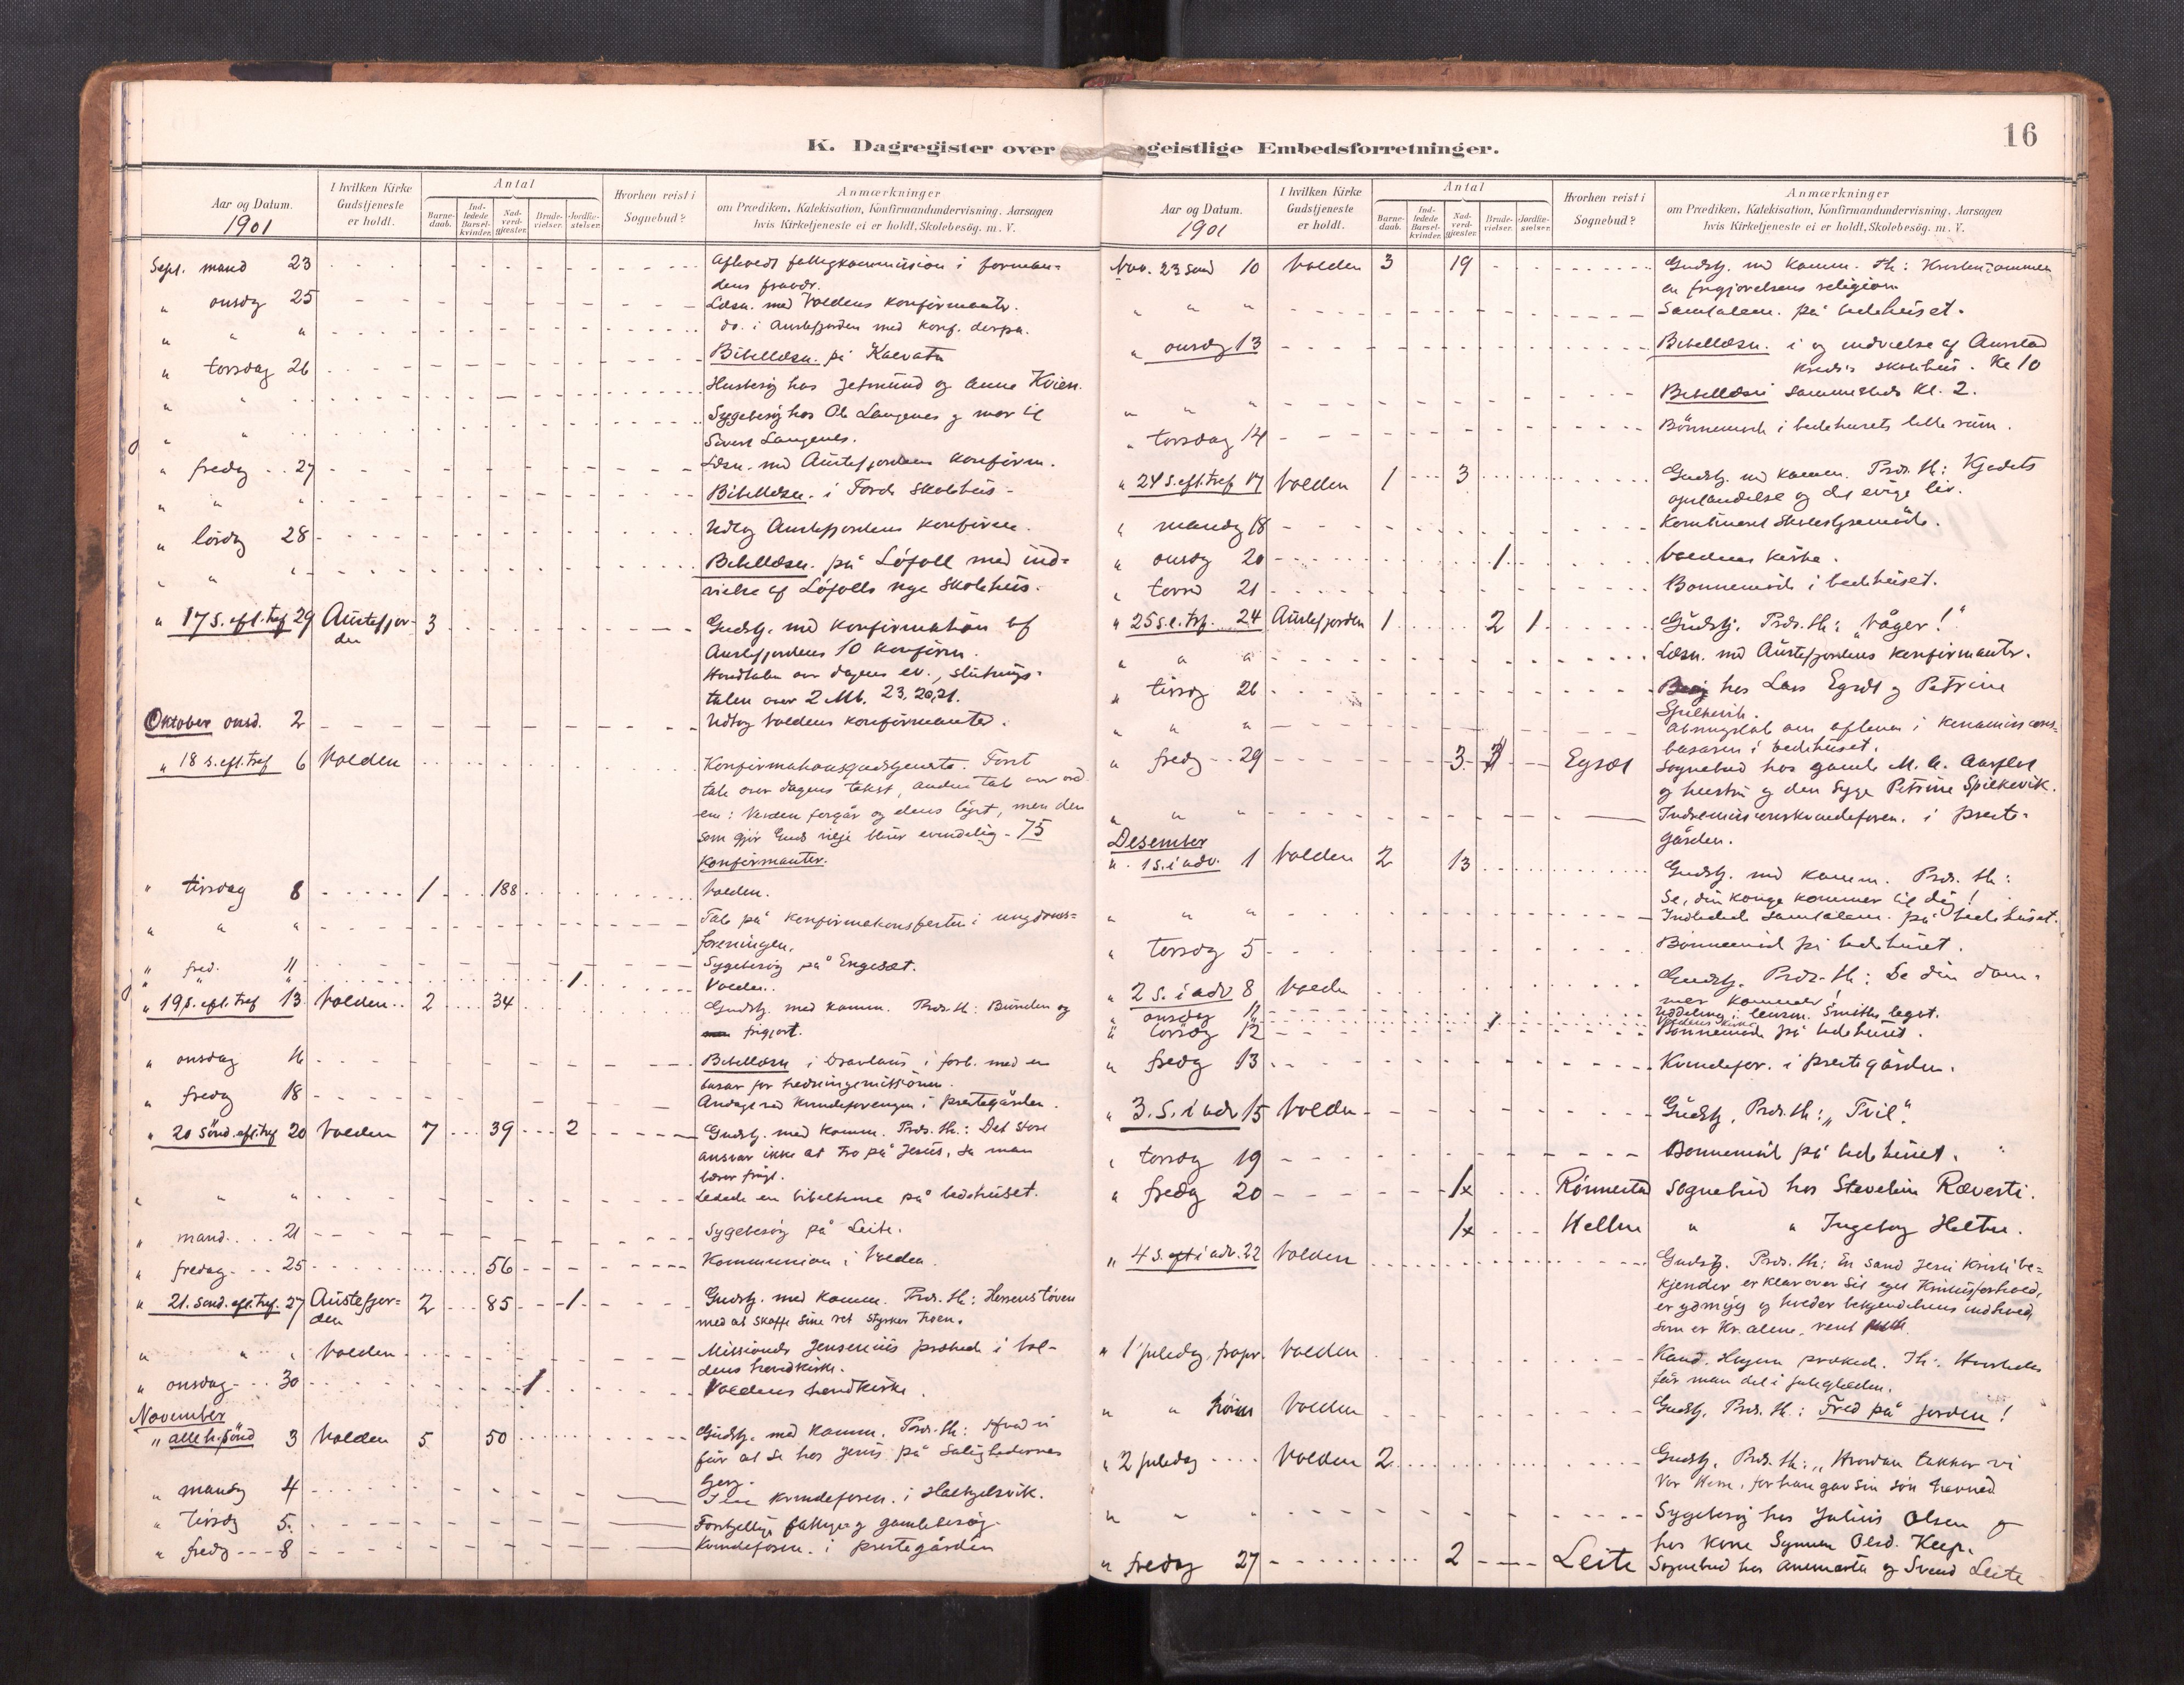 16
K. Dagregister over geistlige Embedsforretninger.
Aar og Datum. 1901
I hvilken Kirke Gudstjeneste er holdt.
Antal
Barnedaab. Indledede Barselkvinder. Nadverdgjæster. Brudevielser. Jordfæstelser.
Hvorhen reist i Sognebud?
Anmærkninger
om Prædiken, Katekisation, Konfirmandundervisning, Aarsagen
hvis Kirketjeneste ei er holdt, Skolebesög. m. V.
Sept. mand 23 Afholdt fattigkommission i forman-
dens fravær.
" onsdag 25 Læsn. med Voldens konfirmanter.
" " " do. i Austefjorden med konf. derfra.
" torsdag 26 Bibellæsn. på
" " Husbesög hos Jetmund og Anne Kvien.
" " Sygebesög hos Ole Langenes og mor til
Sivert Langenes.
" fredag 27 Læsn. med Austefjordens konfirm.
" " " Bibellæsn. i Fords skolehus
" lördag 28 Udtog Austefjordens konfirm.
" " " Bibellæsn. på Löfoll med ind-
vielse af Löfolls nye skolehus.
" 17 s. eft. tref 29 Austefjor-
den 3 Gudstj. med konfirmation af
Austefjordens 10 konfirm.
over dagens ev., slutnings-
talen over 2 Mb. 23. 20,21.
Oktober onsd. 2 Udtog Voldens konfirmanter.
" 18 s. eft. tref 6 Volden Konfirmationsgudstjeneste. Först
tale over dagens tekst, anden tale over ord-
ene: Verden forgår og dens lyst, men den
som gjör Guds vilje bliver evindelig - 75
konfirmanter.
" tirsdag 8 1 188 Volden.
" " " Tale på konfirmationsfesten i ungdoms-
foreningen.
" fred. 11 Sygebesög på Engeset.
" " 1 Volden.
" 19 s. eft. tref 13 Volden 2 34 Gudstj. med komm. Præd. th: Bunden og
frigjort.
" onsdag 16 Bibellæsn i Dravlaus i forb. med en
basar for hedningemissionen.
" fredag 18 Andagt ved kvindeforeningen i prestegården.
" 20 sönd. eft. tref 20 Volden 7 39 2 Gudstj. med komm. Præd. th.: Det store
ansvar ikke at tro på Jesus, da man
bærer frugt.
" " " Ledede en bibeltime på bedehuset.
" mand. 21 Sygebesög på Leite.
" fredag 25 56 Kommunion i Volden
" 21. sönd. eft. tref. 27 Austefjor-
den 2 85 1 Gudstj. med komm. Præd. th: Herrens töven
med at skaffe sine ret styrker troen.
" " " Volden Missionær præked i Vol-
dens hovedkirke.
" onsdag 30 1 Voldens hovedkirke.
November
" alle h. sönd 3 Volden 5 50 Gudstj. med komm. Præd. th: Hvad vi
får at se hos Jesus på Salighedernes
berg.
" mandag 4 kvindeforen. i Halkjelsvik.
" tirsdag 5. Forskjellige fattige og gamlebesög.
" fredag 8 Kvindeforen. i prestegården
Aar og Datum. 1901
I hvilken Kirke Gudstjeneste er holdt.
Antal
Barnedaab. Indledede Barselkvinder. Nadverdgjæster. Brudevielser. Jordfæstelser.
Hvorhen reist i Sognebud?
Anmærkninger
om Prædiken, Katekisation, Konfirmandundervisning, Aarsagen
hvis Kirketjeneste ei er holdt, Skolebesög. m. V.
Nov. 23 sönd 10 Volden 3 19 Gudstj. med komm. th: Kristendommen
en frigjörelsens religion
" " Samtalem. på bedehuset.
" onsdag 13 Bibellæsn. i og indvielse af Aurstad
kreds's skolehus. Kl 10
" " " Bibellæsn sammesteds kl. 2.
" torsdag 14 Bönnemöde i bedehusets lille rum.
" 24 s. eft. tref 17 Volden 1 3 Gudstj. med komm. Præd. th: Kjødets
opstandelse og det evige liv.
" mandag 18 Kombineret skolestyremöde.
" onsdag 20 1 Voldens kirke.
" torsd 21 Bönnemöde i bedehuset.
" 25 s. e. trf. 24 Austefjorden 1 2 1 Gudstj. Præd. th: "Våger!"
" " " Læsn. med Austefjordens konfirmanter.
" tirsdag 26 Besög hos Lars Egset og Petrine
Spilkevik.
" " " Åbningstale om aftenen i
basaren i bedehuset.
" fredag 29 3 Egset Sognebud hos gamle M. A. Aarflot
og hustru og den syge Petrine Spilkevik.
" " " Indremissionskvindeforen. i preste-
gården.
Desember
" 1 s. i adv. 1 Volden 2 13 Gudstj. med komm. Præd. th:
Se, din konge kommer til dig!
" " " Indledede samtalem. på bedehuset.
" torsdag 5 Bönnemöde på bedehuset.
" 2 s. i adv 8 Volden Gudstj. Præd. th: Se din dom-
mer kommer!
" onsdag 11 Uddeling i lensm. Smiths legat.
" torsdag 12 1 Voldens kirke
Bönnemöde på bedehuset.
" fredag 13 Kvindefor. i prestegården.
" 3. s. i adv 15 Volden Gudstj. Præd. th: "Tvil".
" torsdag 19 Bönnemöde på bedehuset.
" fredag 20 1x Rönnestad Sognebud hos Rævesti.
1x Heltne " " Ingeborg Heltne.
" 4 s. i adv. 22 Volden Gudstj. Præd. th: En sand Jesu Kristi be-
kjender er klar over sit eget
er ydmyg og hævder bekjendelsens indhold,
som er Kr. alene, rent
" 1 juledag, fropr. Volden Kand. præked. Th: Hvorledes
får man del i juleglæden.
" " höim Volden Gudstj. Præd. th: Fred på jorden!
" 2 juledag Volden 2 Gudstj. Præd. th: "Hvordan takker vi
vor Herre, for han gav sin sön herned
" " " Sygebesög hos Julius Olsen og
hos kone Synnev Olsd.
" fredag 27 2 Leite Sognebud hos Annemarta og Svend Leite